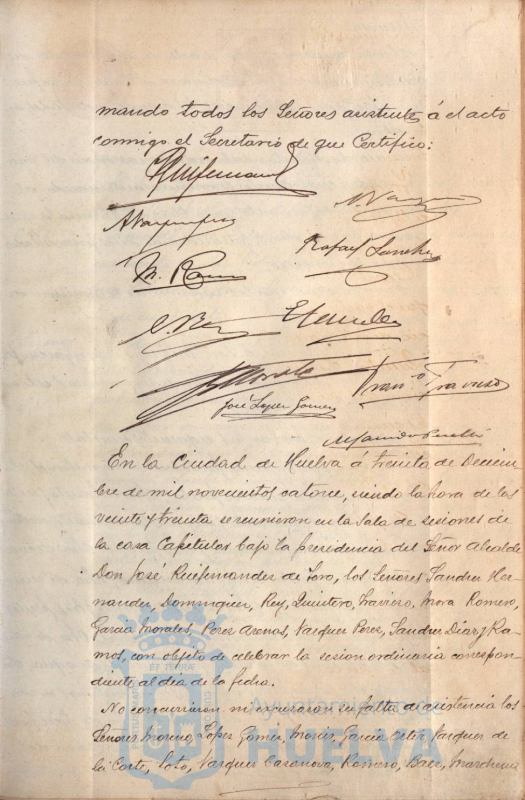 mando todos los Señores asistentes á el acto
conmigo el Secretario de que Certifico:
M. Ramos
Rafael Sanchez
José Lopez Gomez
Fran.co Travieso
En la Ciudad de Huelva á treinta de Diciem
bre de mil novecientos catorce, siendo la hora de las
veinte y treinta se reunieron en la Sala de sesiones de
la casa Capitular bajo la presidencia del Señor Alcalde
Don José Ruifernandez de Toro, los Señores Sanchez Her-
nandez, Dominguez, Rey, Quintero, Travieso, Mora Romero,
Garcia Morales, Perez Arenas, Vazquez Perez, Sanchez Diaz y Ra-
mos, con objeto de celebrar la sesion ordinaria correspon-
diente al dia de la fecha.
No concurrieron ni excusaron su falta de asistencia los
Señores Moreno, Lopez Gomez, Garcia Ortiz, Vazquez de
la Corte, Soto, Vazquez Casanova, Romero, Baez, Marchena
HUELVA